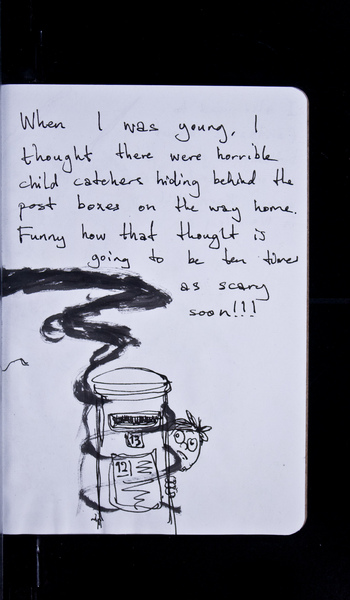 When I was young, I
thought there were horrible
child catchers hiding behind the
post boxes on the way home.
Funny how that thought is
going to be ten times
as scary
soon!!!
13
12